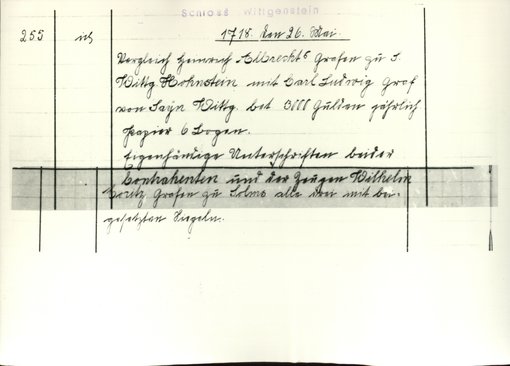 Schloss Wittgenstein
255 1718. den 26. Mai.
Vergleich Heinrich Albrechts Grafen zu S.
Wittg. Hohnstein mit Carl Ludwig Graf
von Sayn Wittg. bet. 3000 Gulden jährlich
Papier 6 Bogen.
Eigenhändige Unterschriften beider
Contrahenten und der Zeugen Wilhelm
Moritz Grafen zu Solms alle drei mit bei-
gesetzten Siegeln.